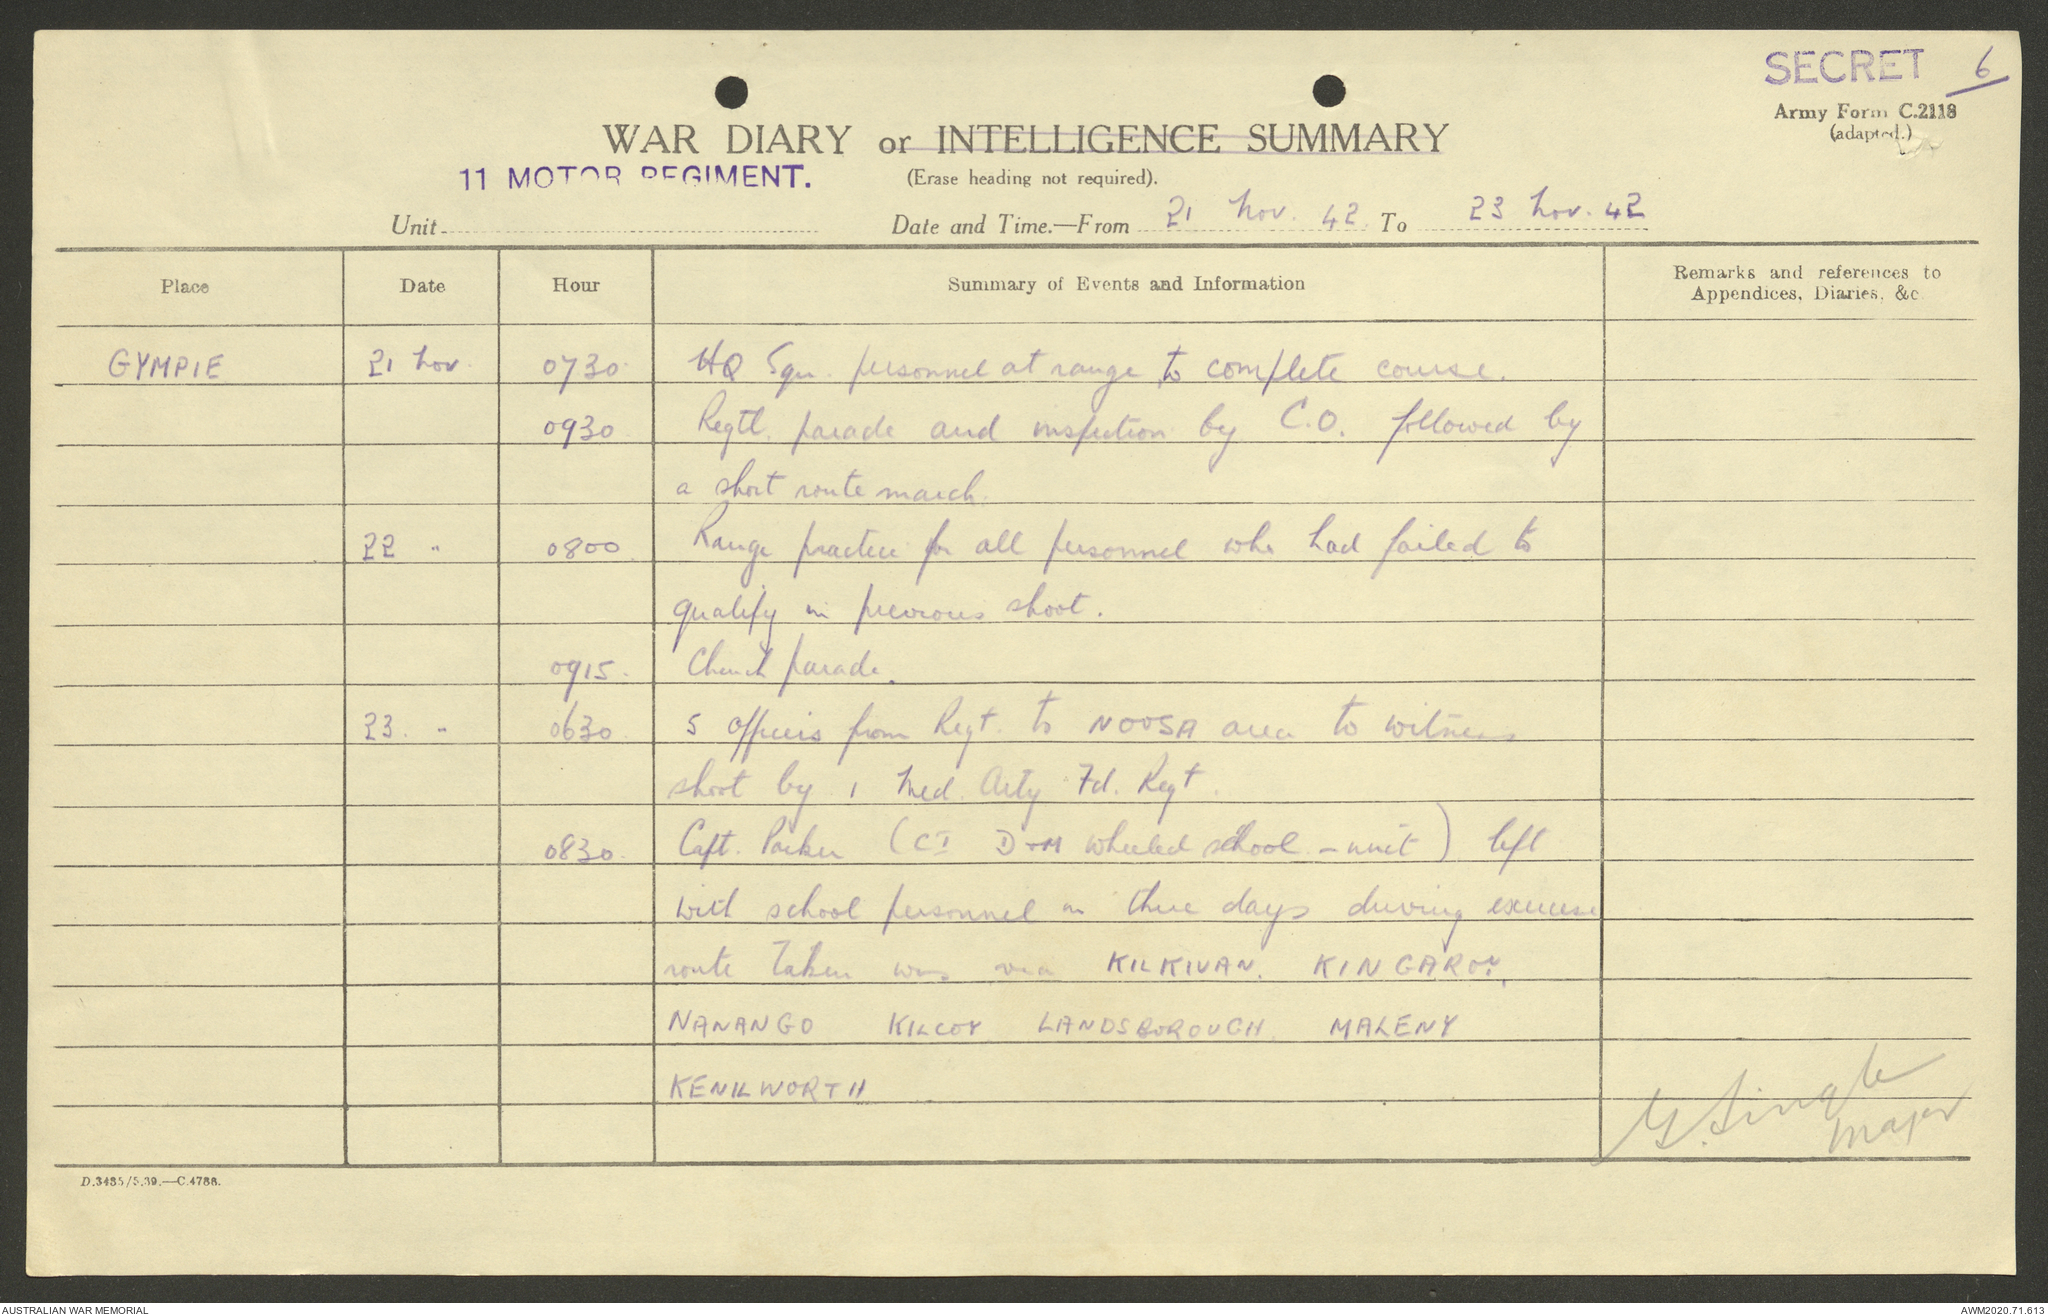 SECRET 6
Army Form C.2118
(adapted.)
WAR DIARY or INTELLIGENCE SUMMARY
11 MOTOR REGIMENT.
(Erase heading not required).
Unit
Date and Time.—From 21 Nov. 42. To 23 Nov. 42
Place Date Hour Summary of Events and Information Remarks and references to
Appendices, Diaries, &c.
GYMPIE 21 Nov. 0730. HQ Sqn. personnel at range to complete course.
0930 Regtl. parade and inspection by C.O. followed by
a short route march.
22 " 0800 Range practice for all personnel who had failed to
qualify in previous shoot.
0915. Church parade.
23. " 0630 5 officers from Regt. to NOOSA area to witness
shoot by 1 Med. Arty Fd. Regt.
0830. Capt. Parker (CI D+M wheeled school - unit) left
with school personnel on three days driving exercise
route taken was via KILKIVAN. KINGAROY.
NANANGO KILCOY LANDSBOROUGH. MALENY
KENILWORTH
G. Single
Major
D.3435/5.39.—C.4788.
AUSTRALIAN WAR MEMORIAL
AWM2020.71.613